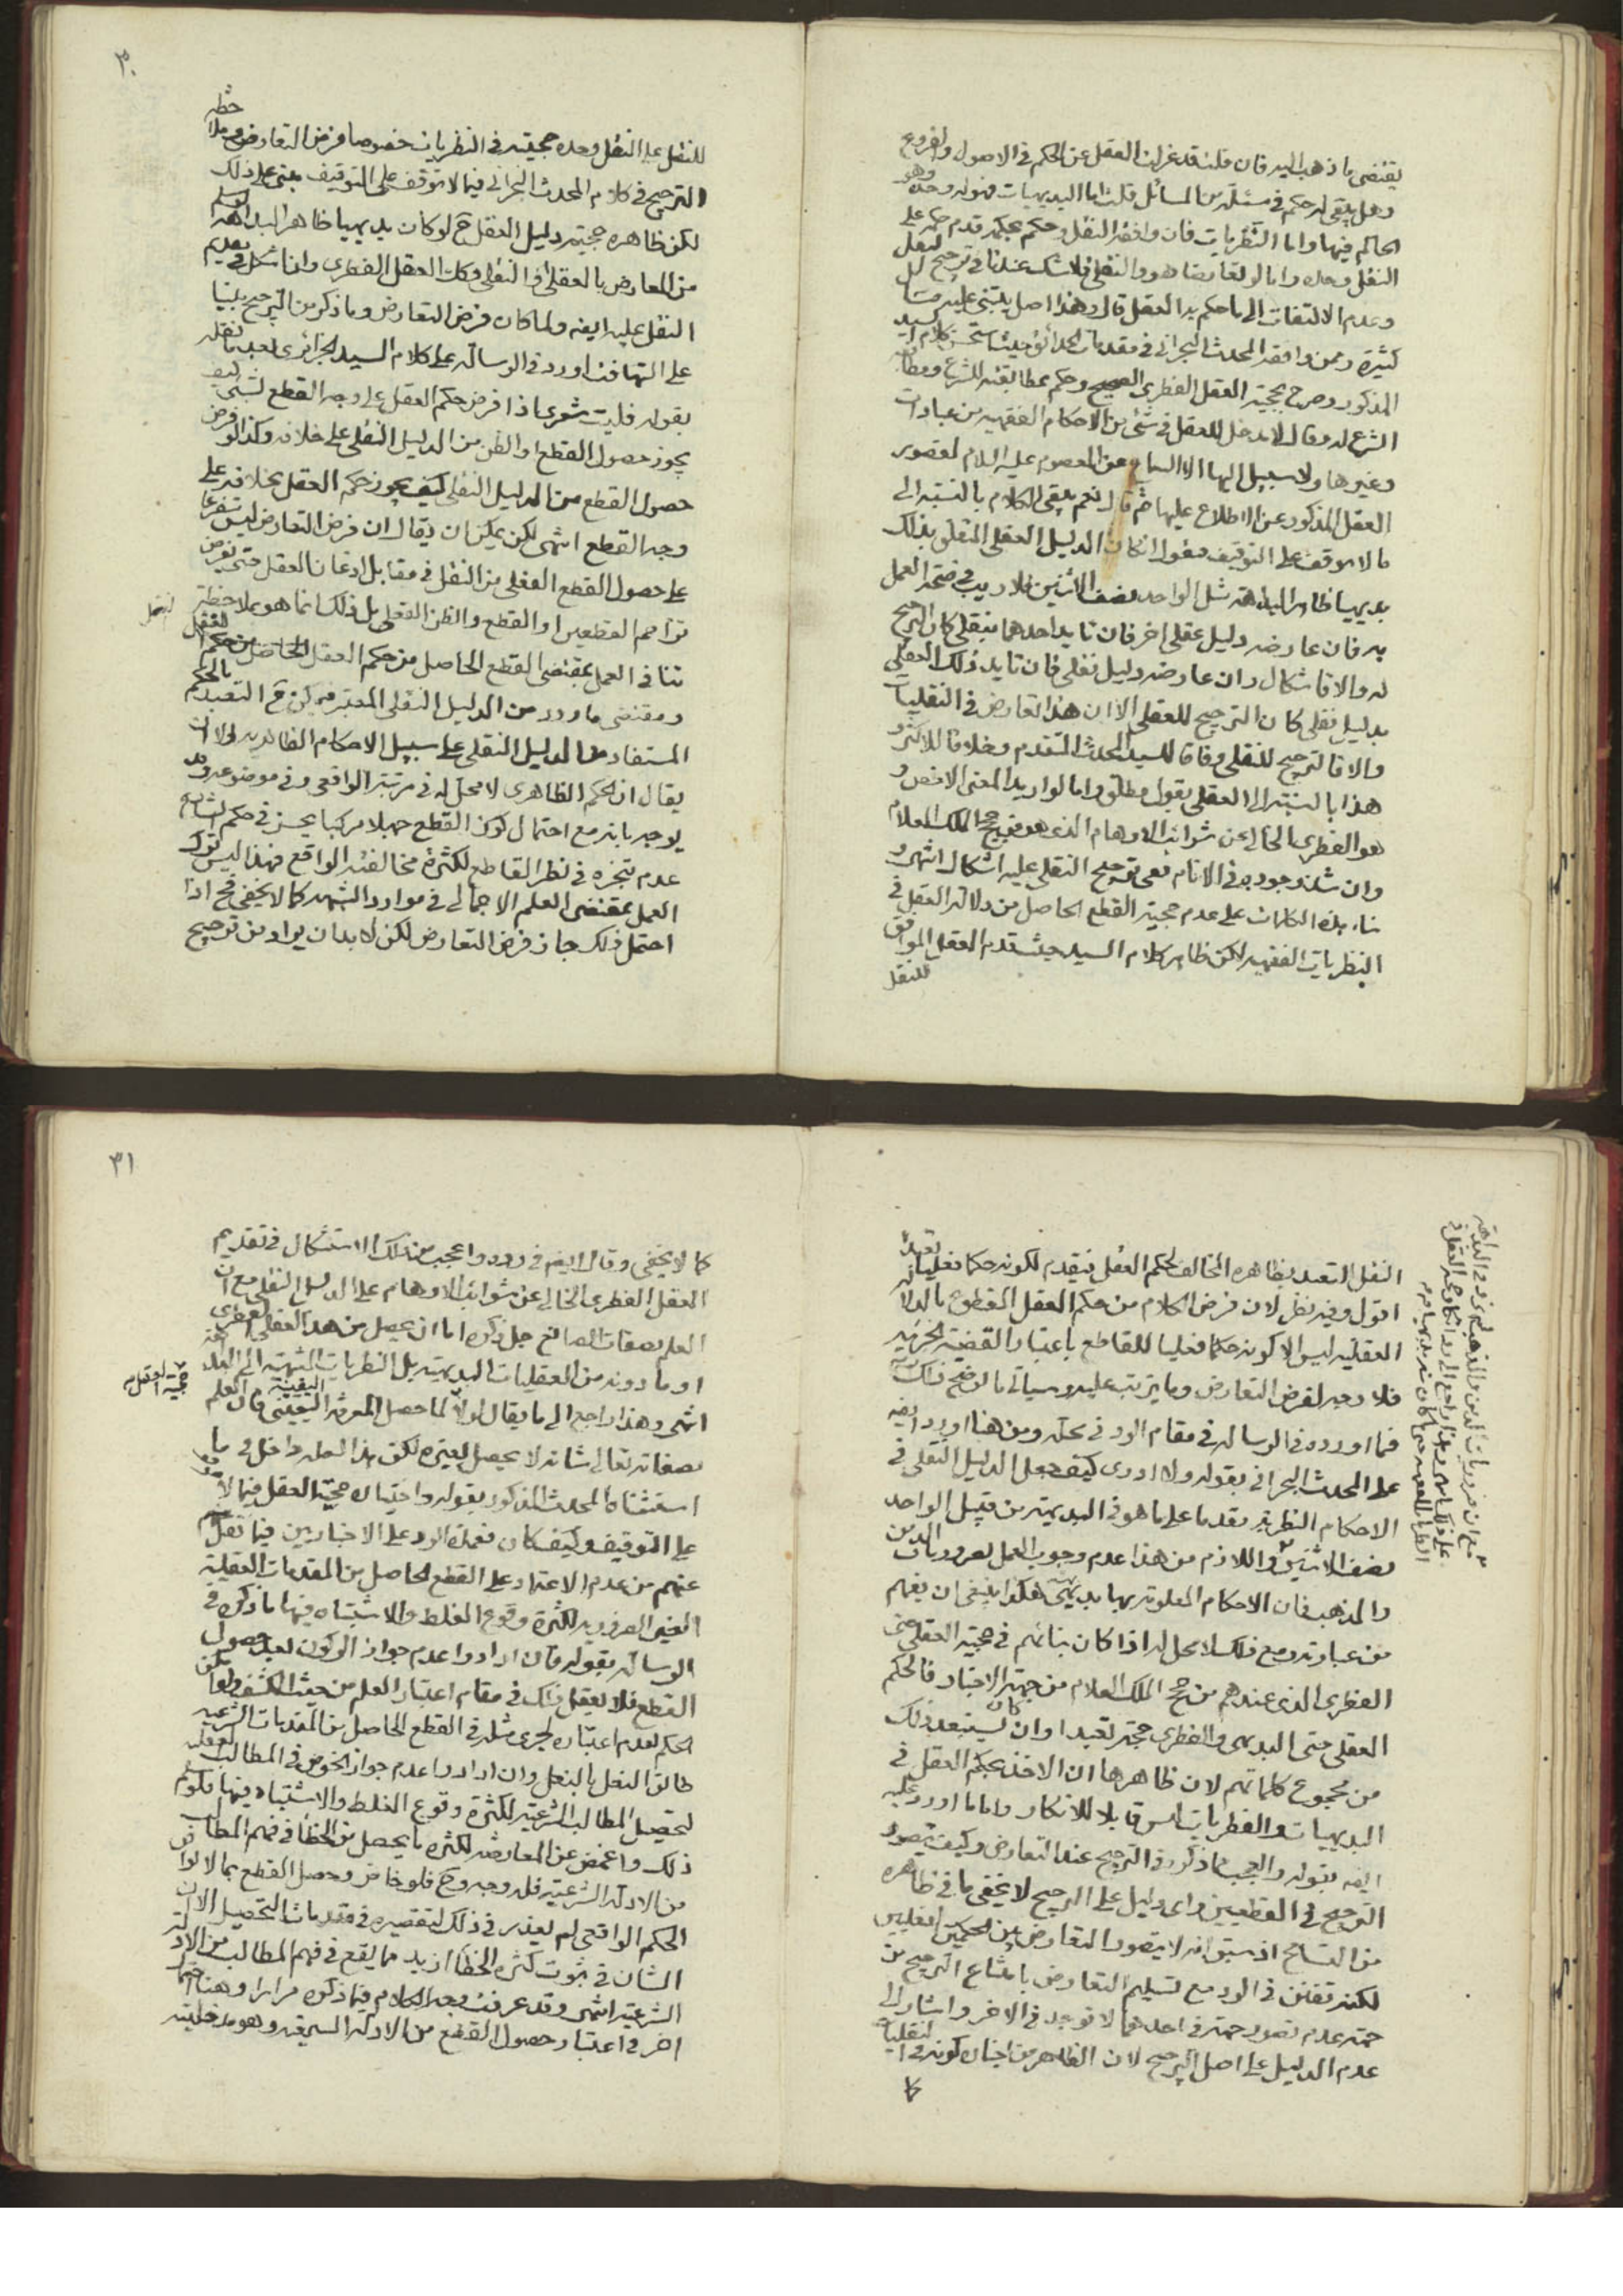 يقتضى ما ذهب اليه فان قلت قد عزلت العقل عن الحكم فى الاصول والفروع
وهل يبقى له حكم فى مسئلة من المسائل قلت اما البديهيات فهو له وحده وهو
الحاكم فيها واما النظريات فان وافقه النقل وحكم بحكمه قدم حكمه على
النقل وحده واما لو تعارضا هو والنقلى فلا شك عندنا فى ترجيح النقل
وعدم الالتفات الى ما حكم به العقل قال وهذا اصل يبتنى عليه مسائل
كثيرة وممن وافقه المحدث البحرانى فى مقدمات الحدائق حيث استحسن كلام السيد
المذكور وصرح بحجية العقل الفطرى الصحيح وحكم بمطابقته للشرع ومطابقة
الشرع له وقال لا مدخل للعقل فى شئ من الاحكام الفقهية من عبادات
وغيرها ولا سبيل اليها الا السماع عن المعصوم عليه السلام لقصور
العقل المذكور عن الاطلاع عليها ثم قال نعم يبقى الكلام بالنسبة الى
ما لا يتوقف على التوقيف فنقول ان كان الدليل العقلى المتعلق بذلك
بديهيا ظاهر البداهة مثل الواحد نصف الاثنين فلا ريب فى صحة العمل
به فان عارضه دليل عقلى اخر فان تايد احدهما بنقلى كان الترجيح
له والا فاشكال وان عارضه دليل نقلى فان تايد ذلك العقلى
بدليل نقلى كان الترجيح للعقلى الا ان هذا تعارض فى النقليات
والا فالترجيح للنقلى وفاقا للسيد المحدث المتقدم وخلافا للاكثر و
هذا بالنسبة الى العقلى بقول مطلق واما لو اريد المعنى الاخص و
هو الفطرى الخالى عن شوائب الاوهام الذى هو من حجج الملك العلام
وان شذ وجوده فى الانام ففى ترجيح النقلى عليه اشكال انتهى و
بناء هذه الكلمات على عدم حجية القطع الحاصل من دلالة العقل فى
النظريات الفقهية لكن ظاهر كلام السيد حيث قدم العقل الموافق
للنقل
٣٠
للنقل على النقل وحده حجيته فى النظريات خصوصا فرض التعارض وملاحظة
الترجيح فى كلام المحدث البحرانى فيما لا يتوقف على التوقيف مبنى على ذلك
لكن ظاهره حجية دليل العقل ح لو كان بديهيا ظاهر البداهة وسلم
من المعارض بالعقلى او النقلى وكذا العقل الفطرى وان اشكل فى تقديم
النقل عليه ايضه ولما كان فرض التعارض وما ذكر من الترجيح مبنيا
على التهافت اورد فى الرسالة على كلام السيد الجزائرى بعد ما نقله
بقوله فليت شعرى اذا فرض حكم العقل على وجه القطع لشئ كيف
يجوز حصول القطع او الظن من الدليل النقلى على خلافه وكذا لو فرض
حصول القطع من الدليل النقلى كيف يجوز حكم العقل بخلافه على
وجه القطع انتهى لكن يمكن ان يقال ان فرض التعارض ليس متفرعا
على حصول القطع الفعلى من النقل فى مقابل اذعان العقل حتى يفرض
تزاحم القطعين او القطع والظن الفعلى بل ذلك انما هو بملاحظة
تنافى العمل بمقتضى القطع الحاصل من حكم العقل
ومقتضى ما ورد من الدليل النقلى المعتبر فيمكن ح التعبد بالحكم
المستفاد من الدليل النقلى على سبيل الاحكام الظاهرية الا ان
يقال ان الحكم الظاهرى لا محل له فى مرتبة الواقعى وفى موضوعه وقد
يوجه بانه مع احتمال كون القطع جهلا مركبا يحسن فى حكم الشارع
عدم تنجزه فى نظر القاطع لكثرة مخالفته الواقع فهذا ليس كترك
العمل بمقتضى العلم الاجمالى فى موارد الشبهة كما لا يخفى فح اذا
احتمل ذلك جاز فرض التعارض لكن لا بد ان يراد من ترجيح
النقل التعبد بظاهره المخالف لحكم العقل فيقدم لكونه حكما فعليا تعبدا
اقول وفيه نظر لان فرض الكلام من حكم العقل المقطوع بالادلة
العقلية ليس الا كونه حكما فعليا للقاطع باعتبار القضية الجزئية
فلا وجه لفرض التعارض وما يترتب عليه وسياتى ما يوضح ذلك
فما اورده فى الرسالة فى مقام الرد فى محله ومن هنا اورد ايضه
على المحدث البحرانى بقوله ولا ادرى كيف جعل الدليل النقلى فى
الاحكام النظرية مقدما على ما هو فى البديهية من قبيل الواحد
نصف الاثنين واللازم من هذا عدم وجوب العمل بضروريات الدين
والمذهب فان الاحكام المعلومة بها بديهى هكذا ينبغى ان يفهم
من عبارته ومع ذلك لا محل له اذا كان بنائهم فى حجية العقل حتى
الفطرى الذى عندهم من حجج الملك العلام من جهة الاخبار فالحكم
العقلى حتى البديهى والفطرى حجة تعبدا وان كان يستبعد ذلك
من مجموع كلماتهم لان ظاهرها ان الاخذ بحكم العقل فى
البديهيات والفطريات ليس قابلا للانكار واما ما اورد عليه
ايضه بقوله والعجب مما ذكره فى الترجيح عند التعارض وكيف يتصور
الترجيح فى القطعيين واى دليل على الترجيح لا يخفى ما فى ظاهره
من التسامح اذ سبق انه لا يتصور التعارض بين الحكمين الفعليين
لكنه تفنن فى الرد مع تسليم التعارض بامتناع الترجيح من
جهة عدم تصور جهة فى احدهما لا توجد فى الاخر واشار الى
عدم الدليل على اصل الترجيح لان الظاهر من اخباره كونه فى النقليات
كما
٣١
كما لا يخفى وقال ايضه فى رده واعجب من ذلك الاستشكال فى تقديم
العقل الفطرى الخالى عن شوائب الاوهام على الدليل النقلى مع ان
العلم بصفات الصانع جل ذكره اما ان يحصل من هذا العقل الفطرى
او ما دونه من العقليات البديهية بل النظريات المنتهية الى البداهة
انتهى وهذا راجع الى ما يقال اولا لما حصل المعرفة اليقينية فان العلم
بصفاته تعالى شانه لا يحصل بغيره لكن هذا العلم داخل فى ما
استثناه المحدث المذكور بقوله واختياره حجية العقل فيما لا يتوقف
على التوقيف وكيف كان فعمدة الرد على الاخباريين فيما نقل
عنهم من عدم الاعتماد على القطع الحاصل من المقدمات العقلية
الغير الضرورية لكثرة وقوع الغلط والاشتباه فيها ما ذكره فى
الرسالة بقوله فان ارادوا عدم جواز الركون بعد حصول
القطع فلا يعقل ذلك فى مقام اعتبار العلم من حيث الكشف ولو امكن
الحكم بعدم اعتباره لجرى مثله فى القطع الحاصل من المقدمات الشرعية
طابق النعل بالنعل وان ارادوا عدم جواز الخوض فى المطالب العقلية
لتحصيل المطالب الشرعية لكثرة وقوع الغلط والاشتباه فيها فلو سلم
ذلك واغمض عن المعارضة لكثرة ما يحصل من الخطأ فى فهم المطالب
من الادلة الشرعية فله وجه وح فلو خاض وحصل القطع بما لا يوافق
الحكم الواقعى لم يعذر فى ذلك لتقصيره فى مقدمات التحصيل الا ان
الشان فى ثبوت كثرة الخطأ ازيد مما يقع فى فهم المطالب من الادلة
الشرعية انتهى وقد عرفت وجه الكلام فيما ذكره مرارا وهنا احتمال
اخر فى اعتبار حصول القطع من الادلة السمعية وهو مدخلية